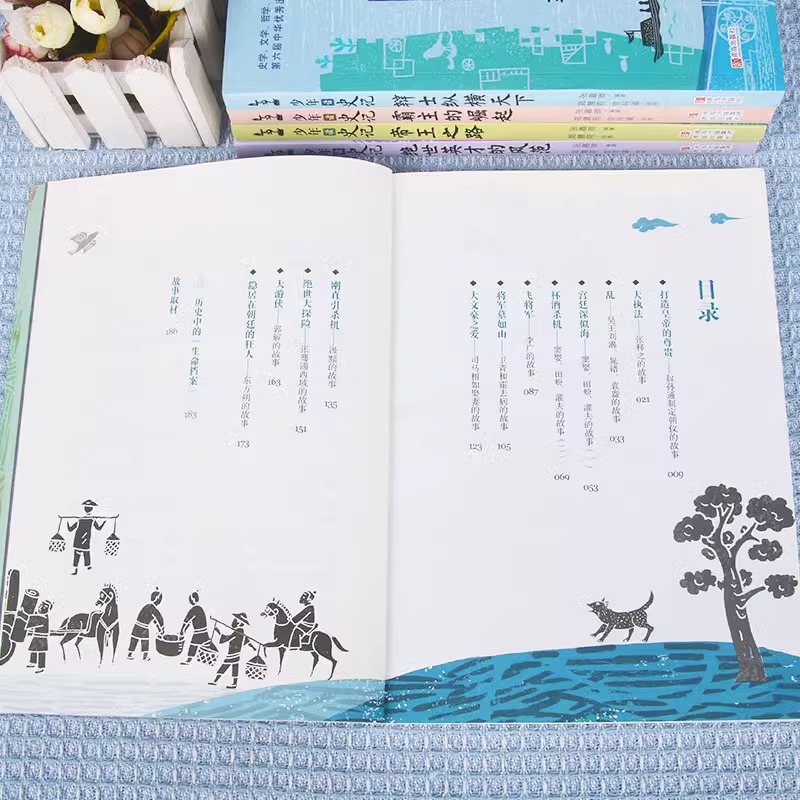 史学、文学、哲学
第六届中华优秀出
青岛出版社
少年读史记 辩士纵横天下
少年读史记 霸王的崛起
少年读史记 帝王之路
少年读史记 绝世英才的风范
目录
打造皇帝的尊贵——叔孙通制定朝仪的故事 009
大执法——张释之的故事 021
乱——吴王刘濞、晁错、袁盎的故事 033
宫廷深似海——窦婴、田蚡、灌夫的故事（一） 053
杯酒杀机——窦婴、田蚡、灌夫的故事（二） 069
飞将军——李广的故事 087
将军墓如山——卫青和霍去病的故事 105
大文豪之爱——司马相如娶妻的故事 123
刚直引杀机——汲黯的故事 135
绝世大探险——张骞通西域的故事 151
大游侠——郭解的故事 163
隐居在朝廷的狂人——东方朔的故事 173
历史中的“生命档案” 183
故事取材 186